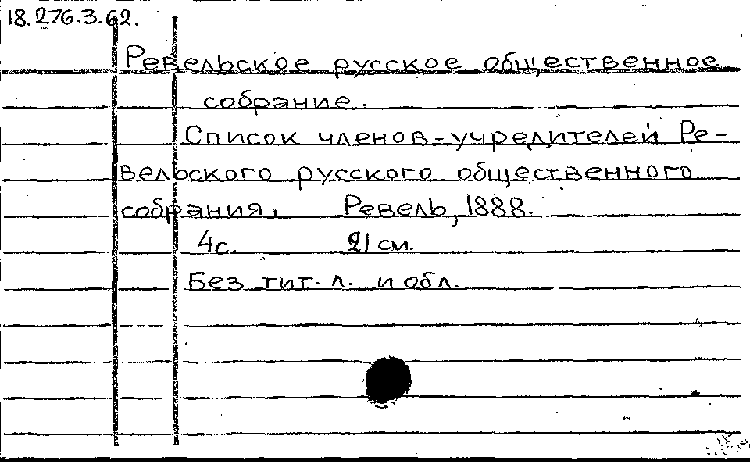 18.276.3.62.
Ревельское русское общественное
собрание.
Список членов-учредителей Ре-
вельского русского общественного
собрания. Ревель, 1888.
4с. 21 см.
Без тит. л. и обл.